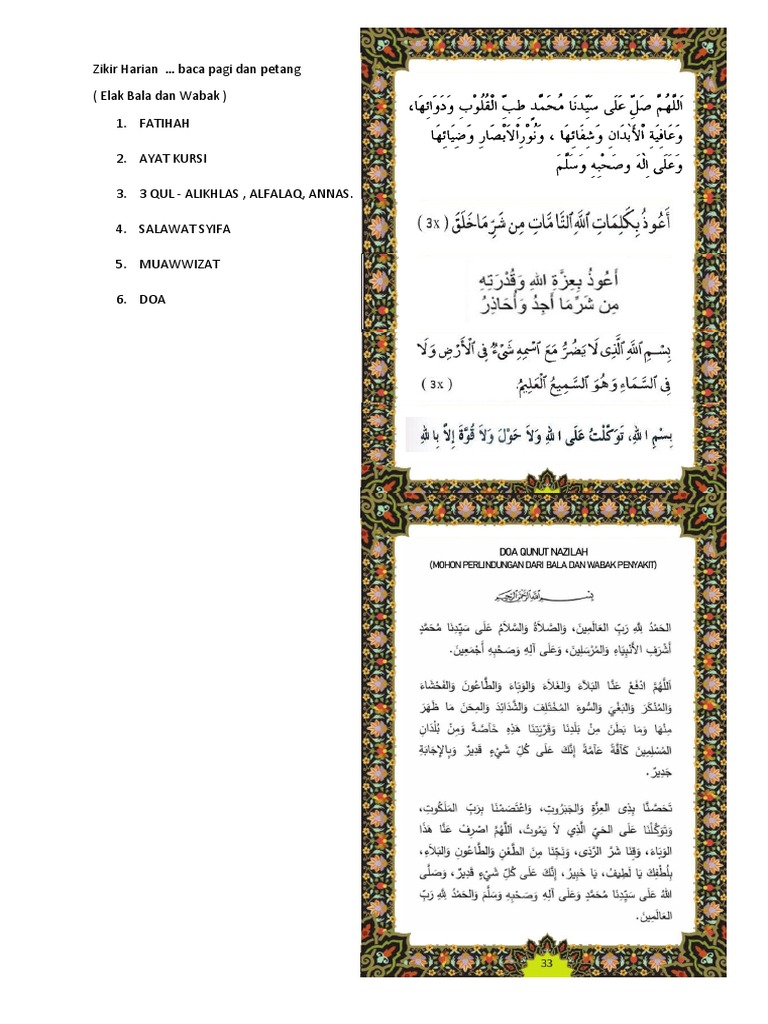 Zikir Harian ... baca pagi dan petang
( Elak Bala dan Wabak )
1. FATIHAH
2. AYAT KURSI
3. 3 QUL - ALIKHLAS , ALFALAQ, ANNAS.
4. SALAWAT SYIFA
5. MUAWWIZAT
6. DOA
اَللّٰهُمَّ صَلِّ عَلَى سَيِّدِنَا مُحَمَّدٍ طِبِّ الْقُلُوْبِ وَدَوَائِهَا،
وَعَافِيَةِ الْأَبْدَانِ وَشِفَائِهَا ، وَنُوْرِالْأَبْصَارِ وَضِيَائِهَا
وَعَلَى اٰلِهِ وَصَحْبِهِ وَسَلَّمَ
أَعُوذُ بِكَلِمَاتِ ٱللَّهِ ٱلتَّامَّاتِ مِن شَرِّ مَا خَلَقَ ( 3x )
أَعُوذُ بِعِزَّةِ اللهِ وَقُدْرَتِهِ
مِن شَرِّ مَا أَجِدُ وَأُحَاذِرُ
بِسْمِ اللَّهِ الَّذِى لَا يَضُرُّ مَعَ اسْمِهِ شَىْءٌ فِى الْأَرْضِ وَلَا
فِى السَّمَاءِ وَهُوَ السَّمِيعُ الْعَلِيمُ. ( 3x )
بِسْمِ اللهِ، تَوَكَّلْتُ عَلَى اللهِ وَلاَ حَوْلَ وَلاَ قُوَّةَ إِلاَّ بِاللهِ
DOA QUNUT NAZILAH
(MOHON PERLINDUNGAN DARI BALA DAN WABAK PENYAKIT)
بِسْمِ اللهِ الرَّحْمٰنِ الرَّحِيْمِ
الحَمْدُ لِلَّهِ رَبِّ العَالَمِينَ، وَالصَّلَاةُ وَالسَّلَامُ عَلَى سَيِّدِنَا مُحَمَّدٍ
أَشْرَفِ الأَنْبِيَاءِ وَالمُرْسَلِينَ، وَعَلَى آلِهِ وَصَحْبِهِ أَجْمَعِينَ.
اَللَّهُمَّ ادْفَعْ عَنَّا البَلَاءَ وَالغَلَاءَ وَالوَبَاءَ وَالطَّاعُونَ وَالفَحْشَاءَ
وَالمُنْكَرَ وَالبَغْيَ وَالسُّوءَ المُخْتَلِفَ وَالشَّدَائِدَ وَالمِحَنَ مَا ظَهَرَ
مِنْهَا وَمَا بَطَنَ مِنْ بَلَدِنَا وَقَرْيَتِنَا هَذِهِ خَاصَّةً وَمِنْ بُلْدَانِ
المُسْلِمِينَ كَافَّةً عَامَّةً إِنَّكَ عَلَى كُلِّ شَيْءٍ قَدِيرٌ وَبِالإِجَابَةِ
جَدِيرٌ.
تَحَصَّنَّا بِذِى العِزَّةِ وَالجَبَرُوتِ، وَاعْتَصَمْنَا بِرَبِّ المَلَكُوتِ،
وَتَوَكَّلْنَا عَلَى الحَيِّ الَّذِي لَا يَمُوتُ، اَللَّهُمَّ اصْرِفْ عَنَّا هَذَا
الوَبَاءَ، وَقِنَا شَرَّ الرَّدَى، وَنَجِّنَا مِنَ الطَّعْنِ وَالطَّاعُونِ وَالبَلَاءِ،
بِلُطْفِكَ يَا لَطِيفُ، يَا خَبِيرُ، إِنَّكَ عَلَى كُلِّ شَيْءٍ قَدِيرٌ، وَصَلَّى
اللهُ عَلَى سَيِّدِنَا مُحَمَّدٍ وَعَلَى آلِهِ وَصَحْبِهِ وَسَلَّمَ وَالحَمْدُ لِلَّهِ رَبِّ
العَالَمِينَ.
33